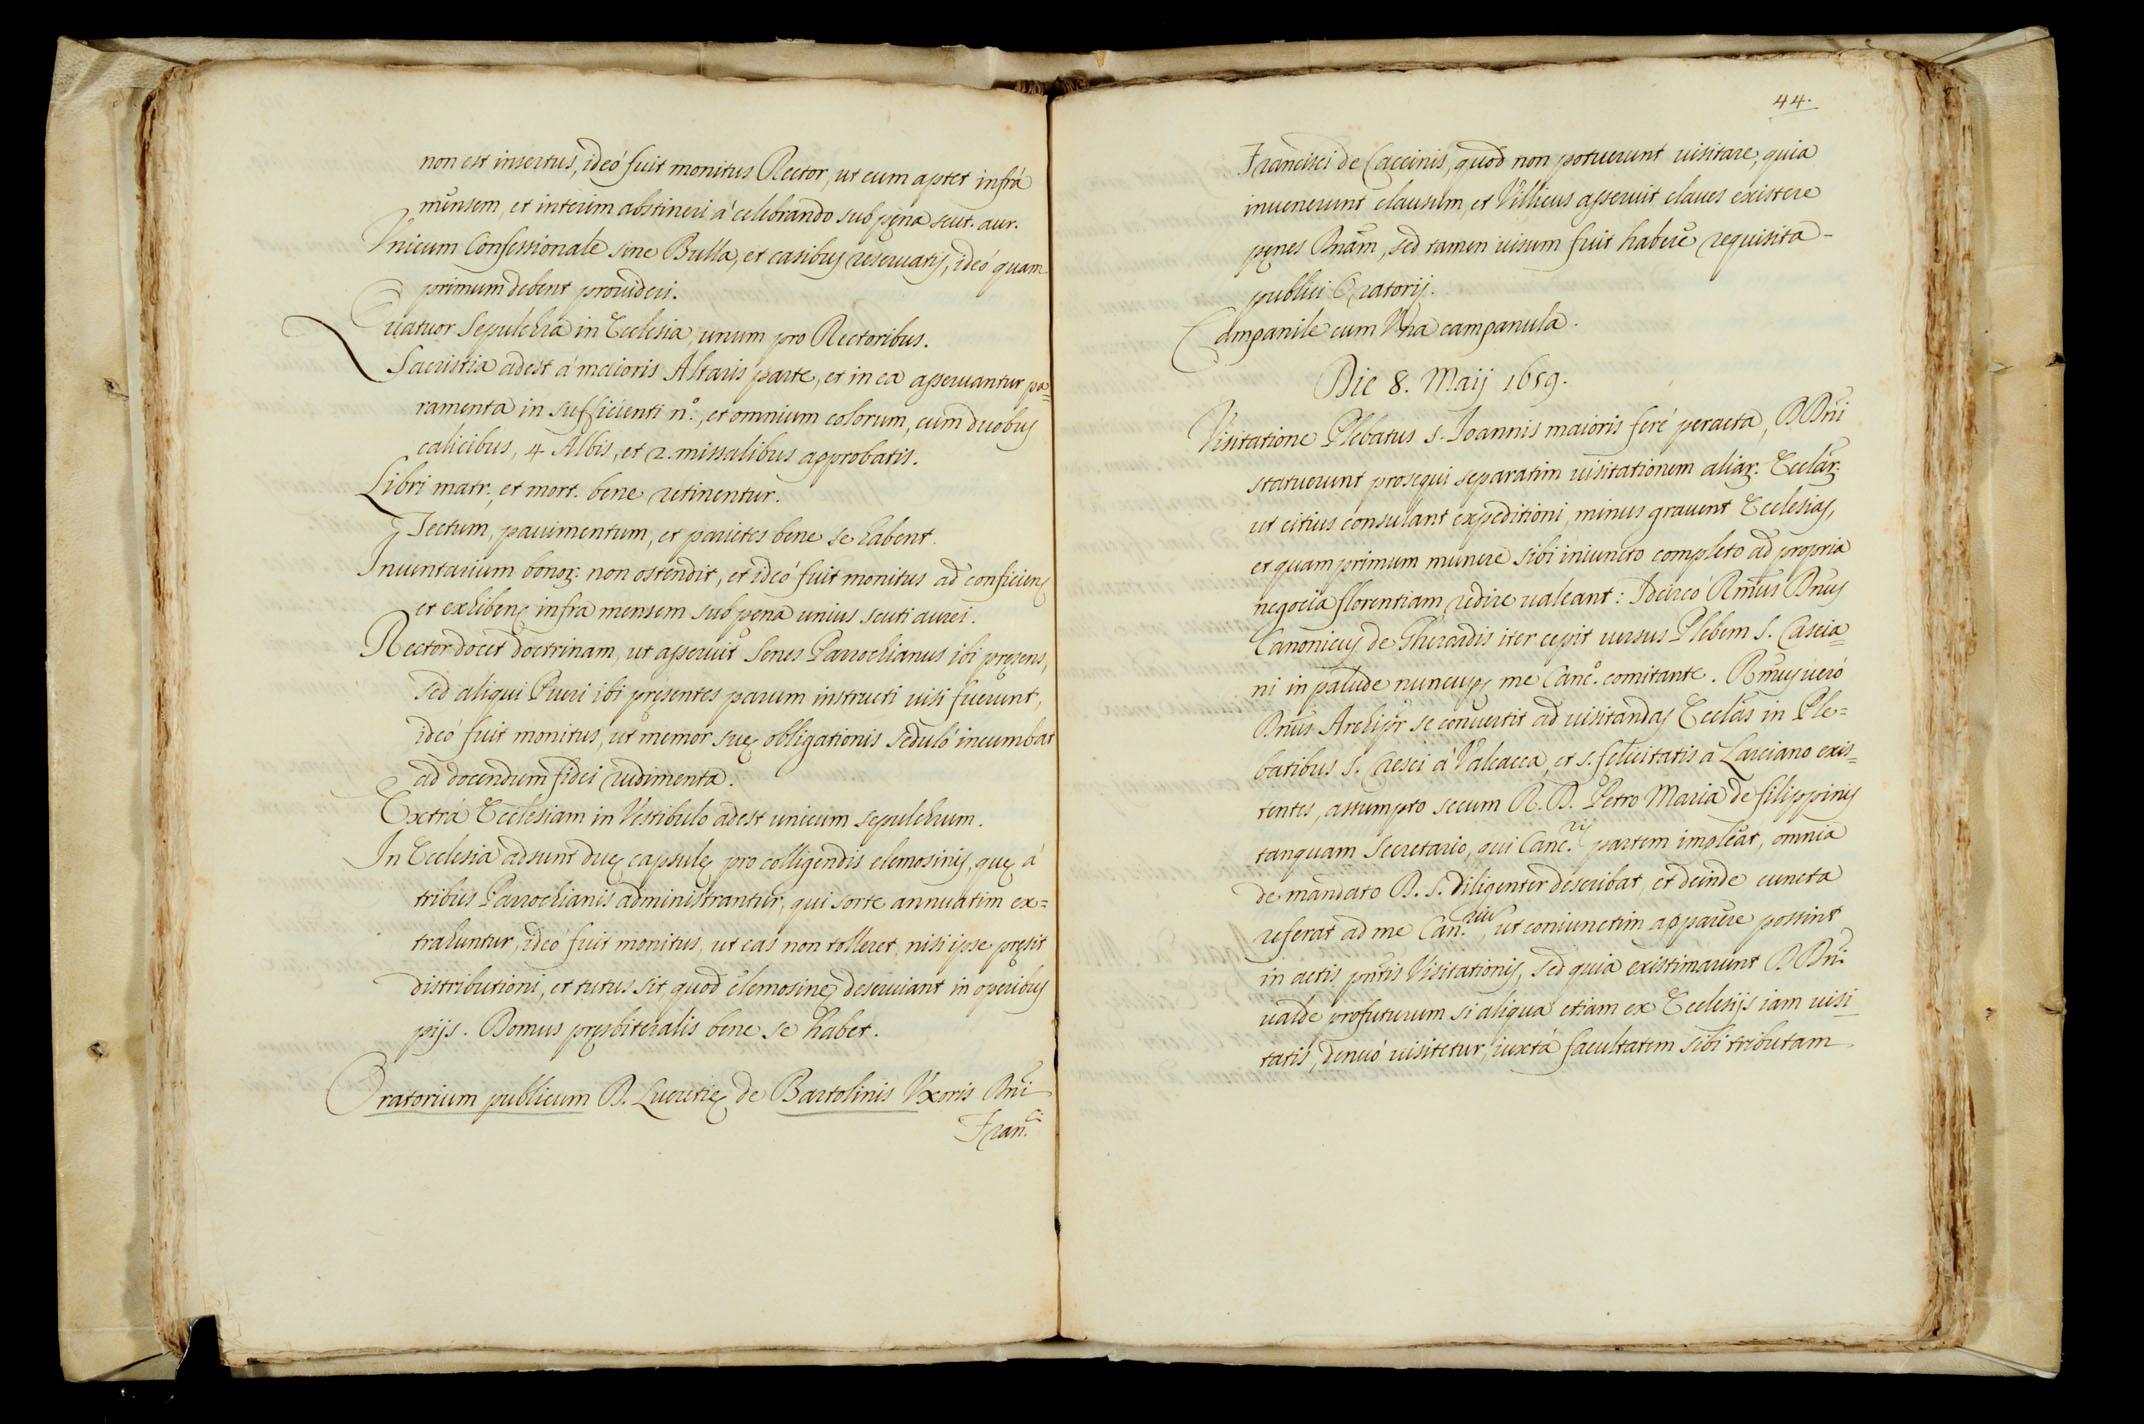 non est insertus, ideò fuit monitus Rector, ut eum aptet infrà
mensem, et interim abstineri à celebrando sub pęna scut. aur.
Vnicum Confessionale sine Bulla, et casibus reseruatis, ideò quam
primum debent prouideri.
Quatuor Sepulchra in Ecclesia, unum pro Rectoribus.
Sacristia adest à maioris Altaris parte, et in ea asseruantur pa=
ramenta in sufficienti n.º, et omnium colorum, cum duobus
calicibus, 4 Albis, et 2. missalibus approbatis.
Libri matr., et mort. bene retinentur.
Tectum, pauimentum, et parietes bene se habent.
Inuentarium bonor: non ostendit, et ideò fuit monitus ad conficien
et exhiben infra mensem sub pena unius scuti aurei.
Rector docet doctrinam, ut asseruit Senes Parrochianus ibi pręsens,
sed aliqui Pueri ibi pręsentes parum instructi uisi fuerunt,
ideò fuit monitus, ut memor suę obligationis sedulò incumbat
ad docendum fidei rudimenta.
Extrà Ecclesiam in Vestibulo adest unicum sepulchrum.
In Ecclesia adsunt duę capsulę pro colligendis elemosinis, quę à
tribus Parrochianis administrantur, qui sorte annuatim ex=
trahuntur, ideò fuit monitus, ut eas non tolleret, nisi ipse pręsit
distributioni, et tutus sit, quod elemosinę deseruiant in operibus
pijs. Domus pręsbiteralis bene se habet.
Oratorium publicum D. Lucretię de Bartolinis Vxoris Dni
Fran.ci
44.
Francisci de Caccinis, quod non potuerunt uisitare, quia
inuenerunt clausum, et Villicus asseruit claues existere
pęnes Dnam, sed tamen uisum fuit habere requisita
publici Oratorij.
Campanile cum Vna campanula.
Die 8. Maij 1659.
Visitatione Plebatus S. Joannis maioris ferè peracta, DDni
statuerunt prosequi separatim uisitationem aliar. Ecclar.
ut citius consulant expeditioni, minus grauent Ecclesias,
et quam primum munere sibi iniuncto completo ad propria
negocia florentiam redire ualeant: Idcirco Rmus Dnus
Canonicus de Gherardis iter cepit uersus Plebem S. Cascia=
ni in padule nuncup. me Canc.º comitante. Rmus uerò
Dnus Archipr se conuertit ad uisitandas Ecclas in Ple=
batibus S. Cresci à Valcaua, et S. felicitatis à Larciano exis=
tentes, assumpto secum R. D. Petro Maria de filippinis
tanquam Secretario, qui Canc.rij partem impleat, omnia
de mandato D. S. diligenter describat, et deinde cuncta
referat ad me Can.rium ut coniunctim apparere possint
in actis pntis Visitationis, sed quia existimarunt DDni
ualde profuturum si aliqua etiam ex Ecclesijs iam uisi
tatis, denuò uisitetur, iuxtà facultatem sibi tributam